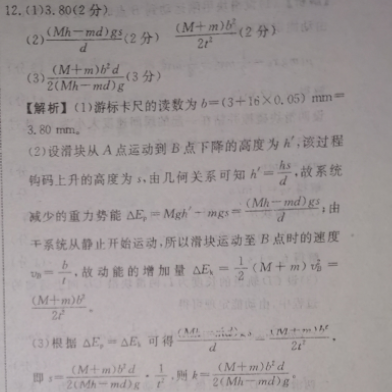 12.(1)3.80(2分)
(2)(Mh-md)gs/d(2分) (M+m)b²/2t²(2分)
(3)(M+m)b²d/2(Mh-md)g(3分)
【解析】(1)游标卡尺的读数为b=(3+16×0.05) mm=
3.80 mm。
(2)设滑块从A点运动到B点下降的高度为h′,该过程
钩码上升的高度为s,由几何关系可知h′=hs/d,故系统
减少的重力势能ΔEp=Mgh′-mgs=(Mh-md)gs/d;由
于系统从静止开始运动,所以滑块运动至B点时的速度
vB=b/t,故动能的增加量ΔEk=1/2(M+m)vB²=
(M+m)b²/2t²。
(3)根据ΔEp=ΔEk可得 = ,
即s=(M+m)b²d/2(Mh-md)g·1/t²,则k=(M+m)b²d/2(Mh-md)g。